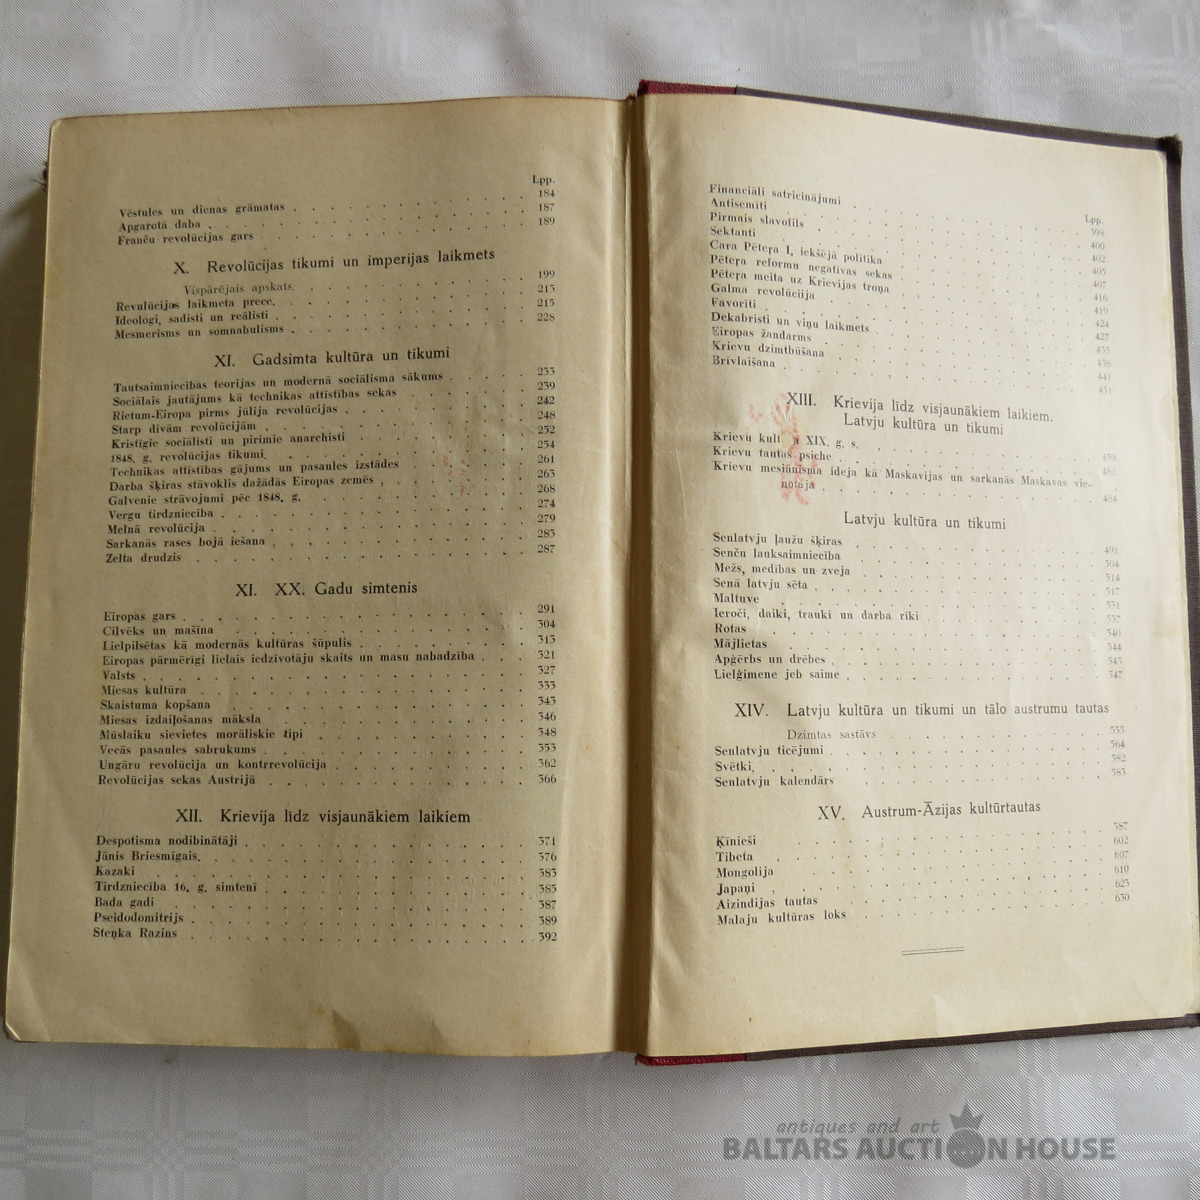 Lpp.
Vēstules un dienas grāmatas 184
Apgarotā daba 187
Franču revolūcijas gars 189
X. Revolūcijas tikumi un imperijas laikmets
Vispārējais apskats. 199
Revulūcijas laikmeta prece. 213
Ideologi, sadisti un reālisti 215
Mesmerisms un somnabulisms 228
XI. Gadsimta kultūra un tikumi
Tautsaimniecības teorijas un modernā sociālisma sākums 233
Sociālais jautājums kā technikas attīstības sekas 239
Rietum-Eiropa pirms jūlija revolūcijas 242
Starp divām revolūcijām 248
Kristīgie sociālisti un pirimie anarchisti 252
1848. g. revolūcijas tikumi. 254
Technikas attīstības gājums un pasaules izstādes 261
Darba šķiras stāvoklis dažādās Eiropas zemēs 263
Galvenie strāvojumi pēc 1848. g. 268
Vergu tirdzniecība 274
Melnā revolūcija 279
Sarkanās rases bojā iešana 283
Zelta drudzis 287
XI. XX. Gadu simtenis
Eiropas gars 291
Cilvēks un mašīna 304
Lielpilsētas kā modernās kultūras šūpulis 313
Eiropas pārmērīgi lielais iedzīvotāju skaits un masu nabadzība 321
Valsts 327
Miesas kultūra 333
Skaistuma kopšana 343
Miesas izdaiļošanas māksla 346
Mūslaiku sievietes morāliskie tipi 348
Vecās pasaules sabrukums 353
Ungāru revolūcija un kontrrevolūcija 362
Revolūcijas sekas Austrijā 366
XII. Krievija līdz visjaunākiem laikiem
Despotisma nodibinātāji 371
Jānis Briesmīgais. 376
Kazaki 383
Tirdzniecība 16. g. simtenī 385
Bada gadi 387
Pseidodomitrijs 389
Steņka Razins 392
Lpp.
Financiāli satricinājumi 398
Antisemīti 400
Pirmais slavofils 402
Sektanti 403
Cara Pētera I, iekšējā politika 407
Pētera reformu negatīvas sekas 416
Pētera meita uz Krievijas troņa 419
Galma revolūciija 424
Favorīti 427
Dekabristi un viņu laikmets 433
Eiropas žandarms 438
Krievu dzimtbūšana 441
Brīvlaišana 451
XIII. Krievija līdz visjaunākiem laikiem.
Latvju kultūra un tikumi
Krievu kult XIX. g. s. 459
Krievu tautas psiche 481
Krievu mesiānisma ideja kā Maskavijas un sarkanās Maskavas vie-
notāja 484
Latvju kultūra un tikumi
Senlatvju ļaužu šķiras 491
Senču lauksaimniecība 504
Mežs, medības un zveja 514
Senā latvju sēta 517
Maltuve 531
Ieroči, daiki, trauki un darba rīki 537
Rotas 540
Mājlietas 544
Apģērbs un drēbes 545
Lielģimene jeb saime 547
XIV. Latvju kultūra un tikumi un tālo austrumu tautas
Dzimtas sastāvs 555
Senlatvju ticējumi 564
Svētki. 582
Senlatvju kalendārs 583
XV. Austrum-Āzijas kultūrtautas
Ķīnieši 587
Tibeta 602
Mongolija 607
Japaņi 610
Aizindijas tautas 623
Malaju kultūras loks 630
antiques and art
BALTARS AUCTION HOUSE